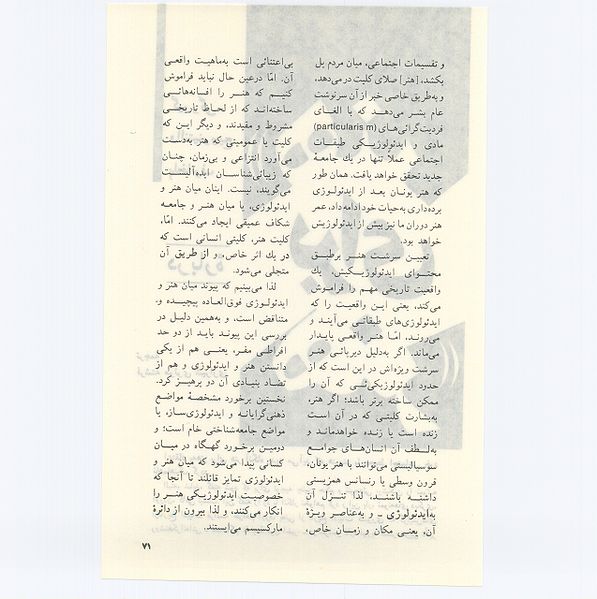 و تقسیمات اجتماعی، میان مردم پل
بکشد، [هنر] صلای کلیت درمی‌دهد،
و به‌طریق خاصی خبر از آن سرنوشت
عام بشر می‌دهد که با الغای
فردیت‌گرائی‌های (particularism)
مادی و ایدئولوژیکی طبقات
اجتماعی عملاً تنها در یك جامعهٔ
جدید تحقق خواهد یافت. همان طور
که هنر یونان بعد از ایدئولوژی
برده‌داری به‌حیات خود ادامه داد، عمر
هنر دوران ما نیز بیش از ایدئولوژیش
خواهد بود.
تعیین سرشت هنر برطبق
محتوای ایدئولوژیکیش، یك
واقعیت تاریخی مهم را فراموش
می‌کند، یعنی این واقعیت را که
ایدئولوژی‌های طبقاتی می‌آیند و
می‌روند، امّا هنر واقعی پایدار
می‌ماند. اگر به‌دلیل دیرپائی هنر
سرشت ویژه‌اش در این است که از
حدود ایدئولوژیکی‌ئی که آن را
ممکن ساخته برتر باشد؛ اگر هنر،
به‌بشارت کلیتی که در آن است
زنده است یا زنده خواهدماند و
به‌لطف آن انسان‌های جوامع
سوسیالیستی می‌توانند با هنر یونان،
قرون وسطی یا رنسانس همزیستی
داشته باشند، لذا تنزل آن
به‌ایدئولوژی ـ و به‌عناصر ویژهٔ
آن، یعنی مکان و زمان خاص،
بی‌اعتنائی است به‌ماهیت واقعی
آن. امّا درعین حال نباید فراموش
کنیم که هنر را انسان‌هائی
ساخته‌اند که از لحاظ تاریخی
مشروط و مقیدند، و دیگر این که
کلیت یا عمومیتی که هنر به‌دست
می‌آورد انتزاعی و بی‌زمان، چنان
که زیبائی‌شناسان ایده‌آلیست
می‌گویند، نیست. اینان میان هنر و
ایدئولوژی، یا میان هنر و جامعه
شکاف عمیقی ایجاد می‌کنند. امّا،
کلیت هنر، کلیتی انسانی است که
در یك اثر خاص، و از طریق آن
متجلی می‌شود.
لذا می‌بینیم که پیوند میان هنر و
ایدئولوژی فوق‌العاده پیچیده، و
متناقض است، و به‌همین دلیل در
بررسی این پیوند باید از دو حد
افراطی مفر، یعنی هم از یکی
دانستن هنر و ایدئولوژی و هم از
تضاد بنیادی آن دو پرهیز کرد.
نخستین برخورد مشخصهٔ مواضع
ذهنی‌گرایانه و ایدئولوژی‌ساز، یا
مواضع جامعه‌شناختی خام است؛ و
دومین برخورد گهگاه در میان
کسانی پیدا می‌شود که میان هنر و
ایدئولوژی تمایز قائلند تا آنجا که
خصوصیت ایدئولوژیکی هنر را
انکار می‌کنند، و لذا بیرون از دائرهٔ
مارکسیسم می‌ایستند.
۷۱